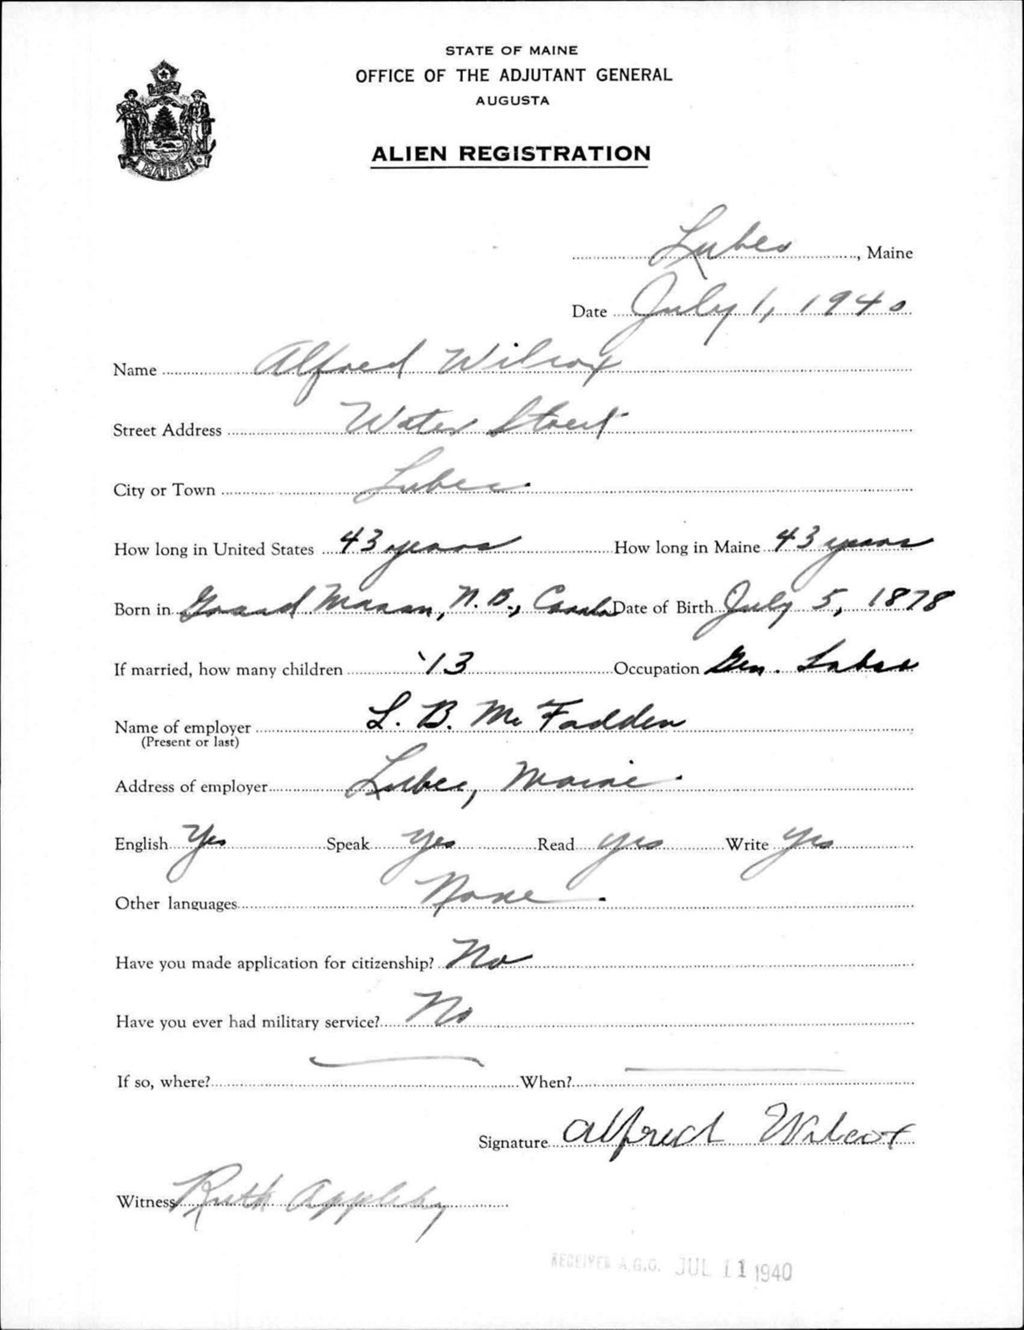 STATE OF MAINE
OFFICE OF THE ADJUTANT GENERAL
AUGUSTA
ALIEN REGISTRATION
MAINE
Lubec, Maine
Date July 1, 1940
Name Alfred Wilcox
Street Address Water Street
City or Town Lubec.
How long in United States 43 years How long in Maine 43 years
Born in Grand Manan, N.B., Canada Date of Birth July 5, 1878
If married, how many children 13 Occupation Gen. Labor
Name of employer L. B. Mc Fadden
(Present or last)
Address of employer Lubec, Maine.
English Yes Speak Yes Read Yes Write Yes
Other languages None.
Have you made application for citizenship? No
Have you ever had military service? No
If so, where? When?
Signature Alfred Wilcox
Witness Ruth Appleby
RECEIVED A.G.O. JUL 11 1940